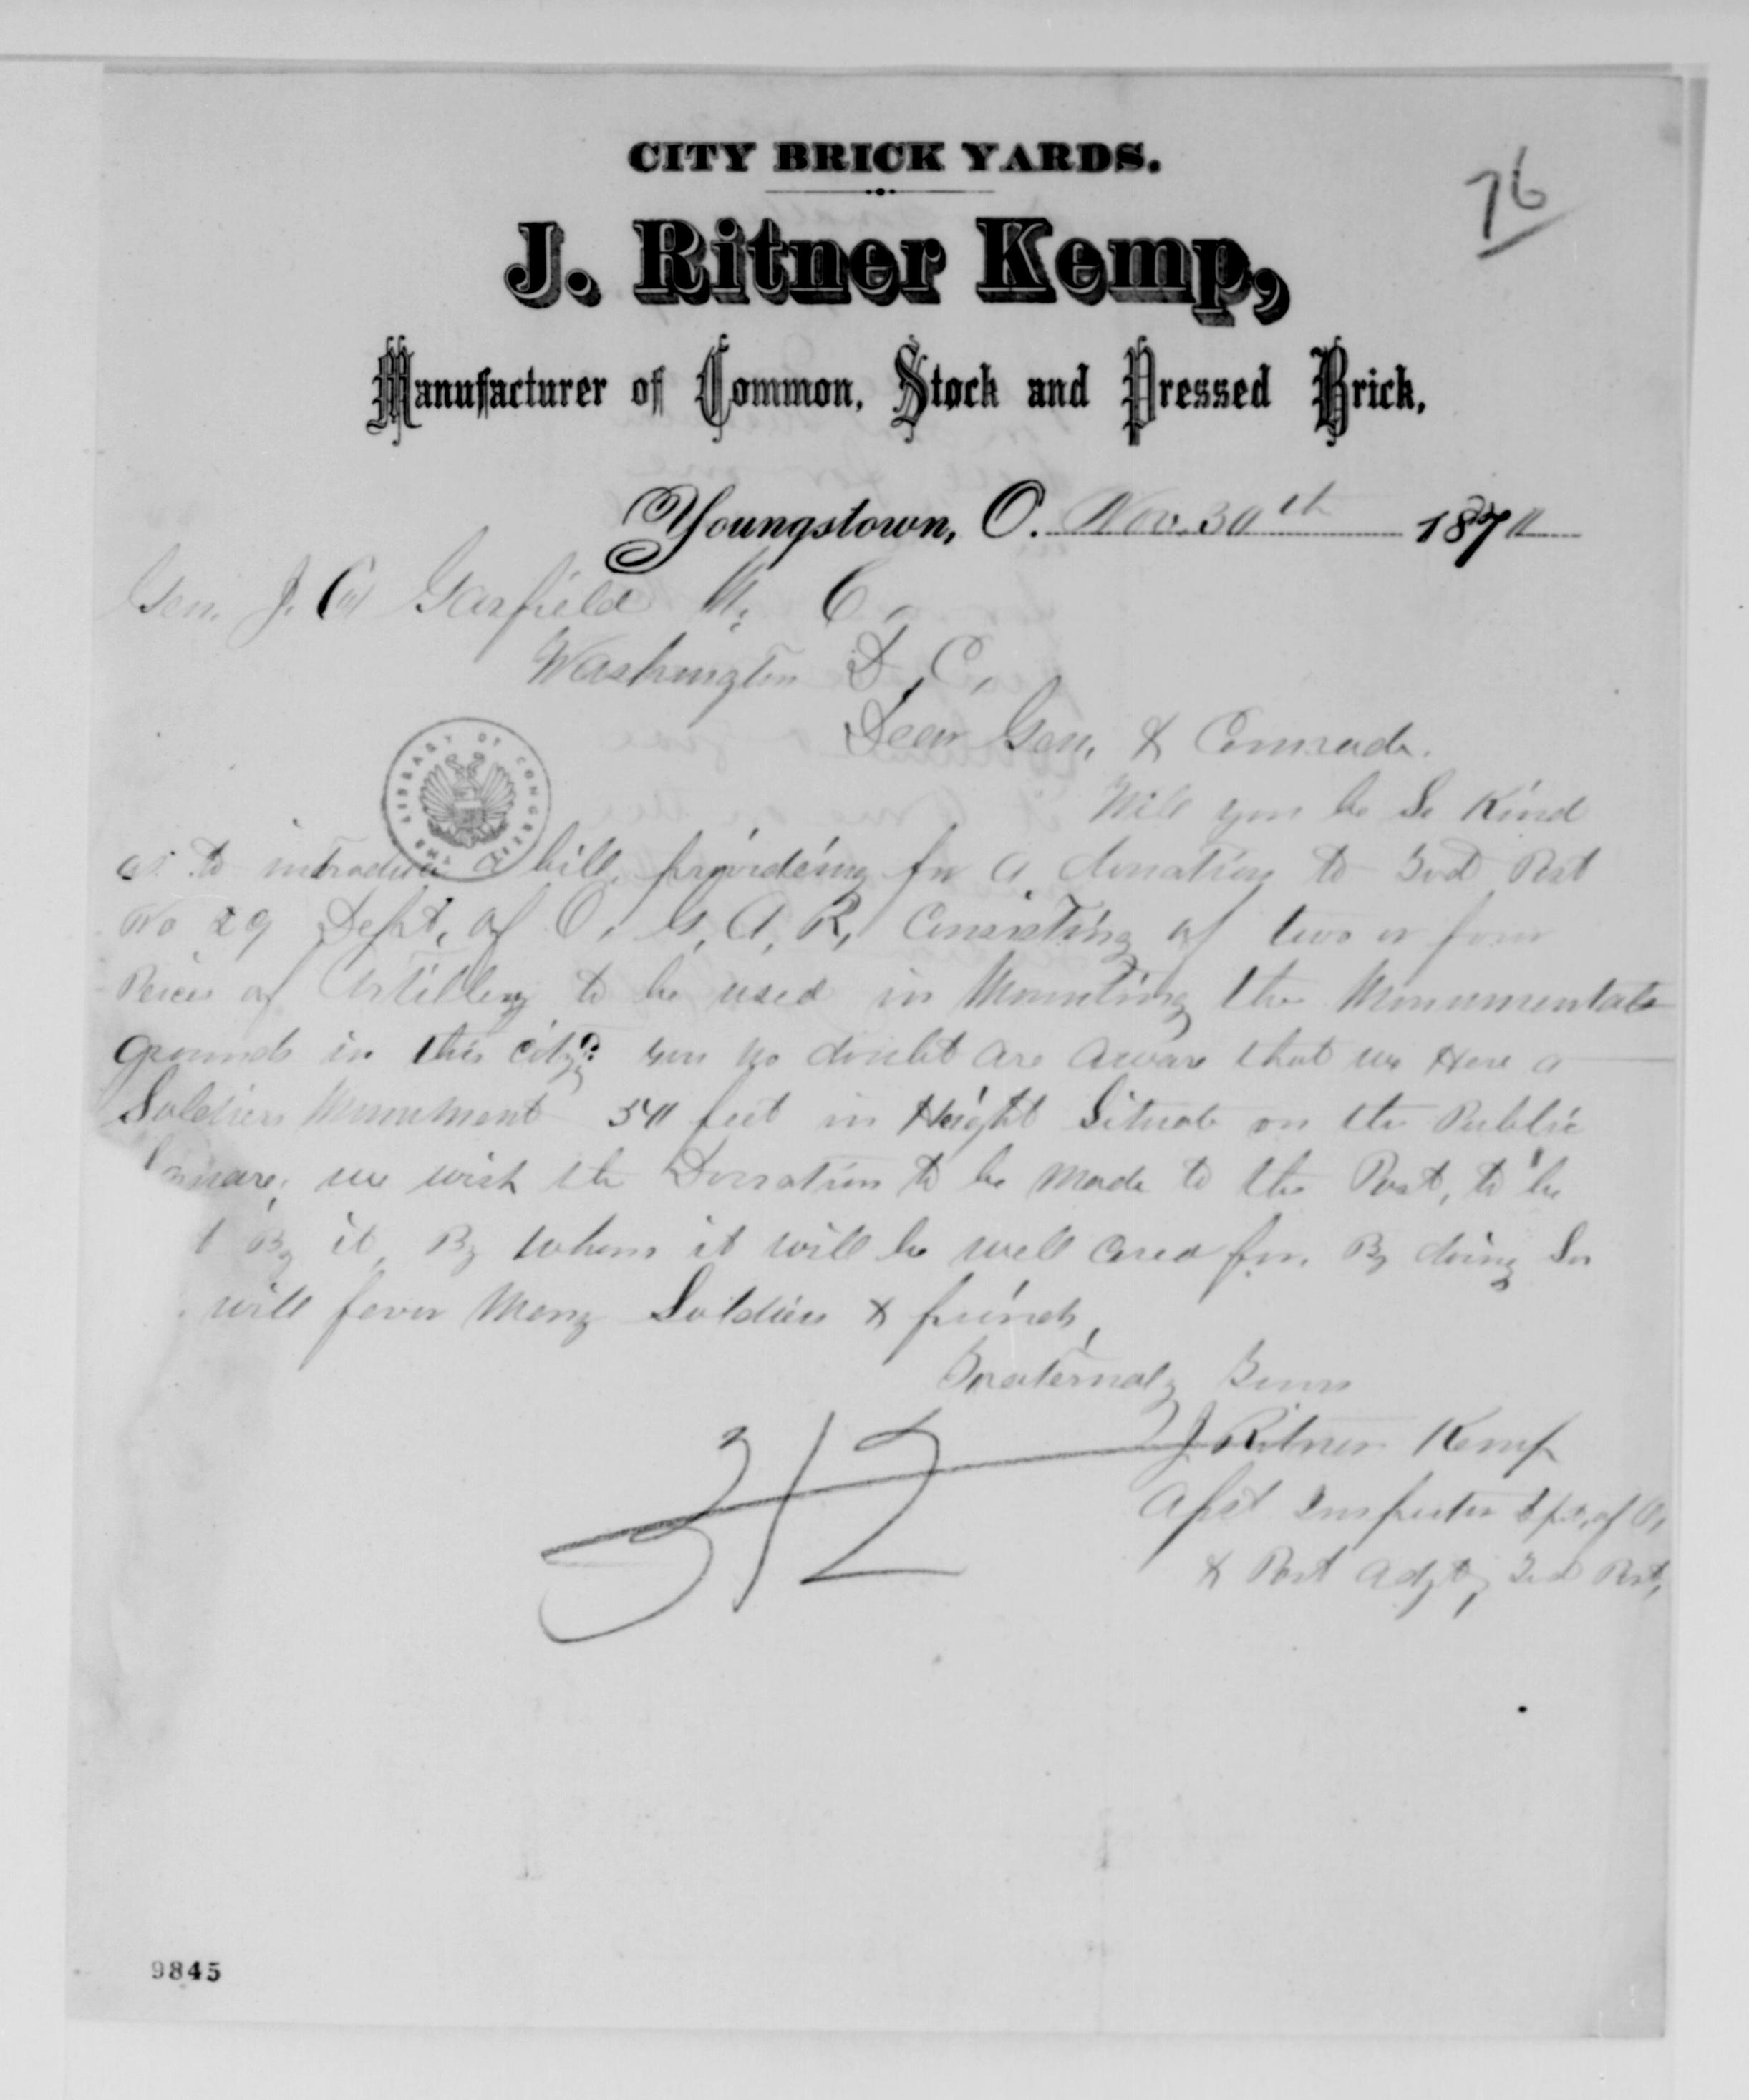 CITY BRICK YARDS.
76
J. Ritner Kemp,
Manufacturer of Common, Stock and Pressed Brick,
Youngstown, O. Nov. 30th 187
Gen. J. A Garfield M. C.
Washington D. C.
Dear Gen. & Comrade.
Will you be So Kind
as to introduce a bill, providing for a donation to Tod Post
No 29 Dept. of O. G. A. R, Consisting of two or four
Peices of Artillery to be used in Mounting the Monumental
grounds in this city? you no doubt are aware that we Have a
Soldiers Monument feet in Height Situate on the Public
Square; we wish the Donation to be Made to the Post, to be
By it, By whom it will be well cared for. By doing So
will favor Many Soldiers & friends,
Fraternaly Yours
J. Ritner Kemp
Asst Inspector Dpt. of O,
& Post Adjt, Tod Post,
312
THE LIBRARY OF CONGRESS
9845